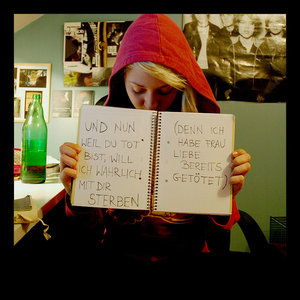 UND NUN
WEIL DU TOT
BIST, WILL
ICH WAHRLICH
MIT DIR
STERBEN
(DENN ICH
HABE FRAU
LIEBE
BEREITS
GETÖTET)